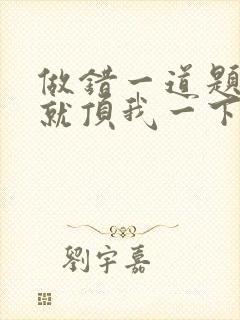 做錯一道題
就頂我一下
劉宇嘉